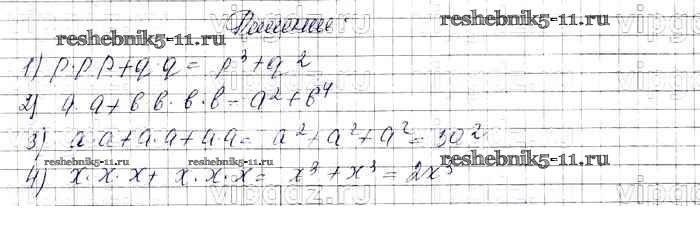 Решение:
reshebnik5-11.ru reshebnik5-11.ru
1) p·p·p+q·q = p³+q²
2) a·a+b·b·b·b = a²+b⁴
3) a·a+a·a+a·a = a²+a²+a² = 3a²
reshebnik5-11.ru reshebnik5-11.ru reshebnik5-11.ru
4) x·x·x + x·x·x = x³+x³ = 2x³
vipgdz.ru vipgdz.ru